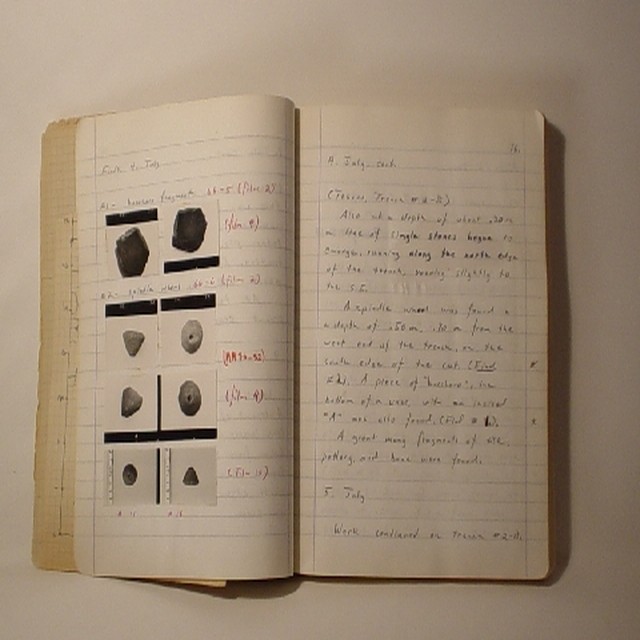 Finds 4. July
#1- bucchero fragments 66-5 (film 2)
(film 9)
#2- spindle whorl 66-6 (film 2)
(film 9)
(film 10)
16.
4. July cont.
(Tesoro, Trench #2-B)
Also at a depth of about .20 m
a line of single stones began to
emerge, running along the north edge
of the trench, running slightly to
the S.E.
A spindle whorl was found at
a depth of .50 m, .70 m from the
west end of the trench, on the
south edge of the cut. (Find
#2). A piece of "bucchero", the
bottom of a vase, with an incised
"A" was also found. (Find # 1).
A great many fragments of tile,
pottery, and bone were found.
5. July
Work continued on Trench #2-B.